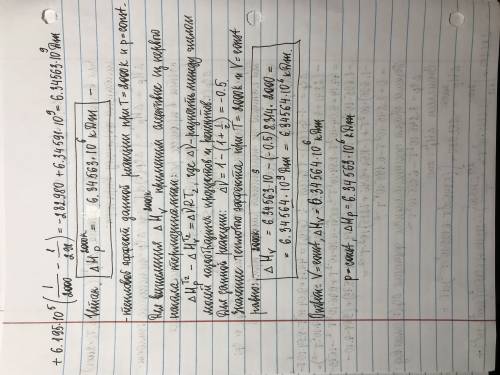 + 6.195·10⁵ (1/2000 − 1/298) = −282.980 + 6.34591·10⁹ = 6.34563·10⁹ Дж
Итак, ΔH_P^2000K = 6.34563·10⁶ кДж −
- тепловой эффект данной реакции при T = 2000K и p = const.
Для вычисления ΔH_V^2000K применим следствие из первого
начала термодинамики:
ΔH_P^T2 − ΔH_V^T2 = ΔνRT₂, где Δν - разность между числом
молей газообразных продуктов и реагентов.
Для данной реакции: Δν = 1 − (1 + 1/2) = −0.5.
Значение теплового эффекта при T = 2000K и V = const
равно:
ΔH_V^2000K = 6.34563·10⁹ − (−0.5)·8.314·2000 =
= 6.34564·10⁹ Дж = 6.34564·10⁶ кДж.
Ответ: V = const, ΔH_V = 6.34564·10⁶
p = const, ΔH_P = 6.34563·10⁶ кДж.